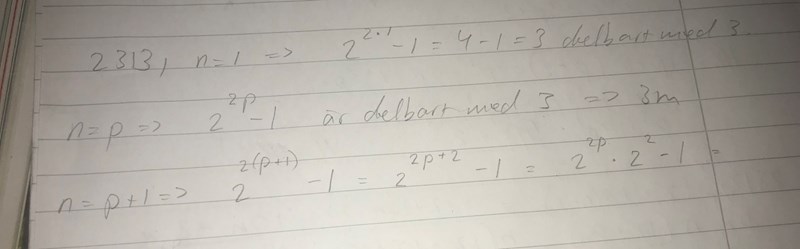 2313, n=1 => 2^{2·1} - 1 = 4 - 1 = 3 delbart med 3.
n=p => 2^{2p} - 1 är delbart med 3 => 3m
n=p+1 => 2^{2(p+1)} - 1 = 2^{2p+2} - 1 = 2^{2p} · 2^2 - 1 =